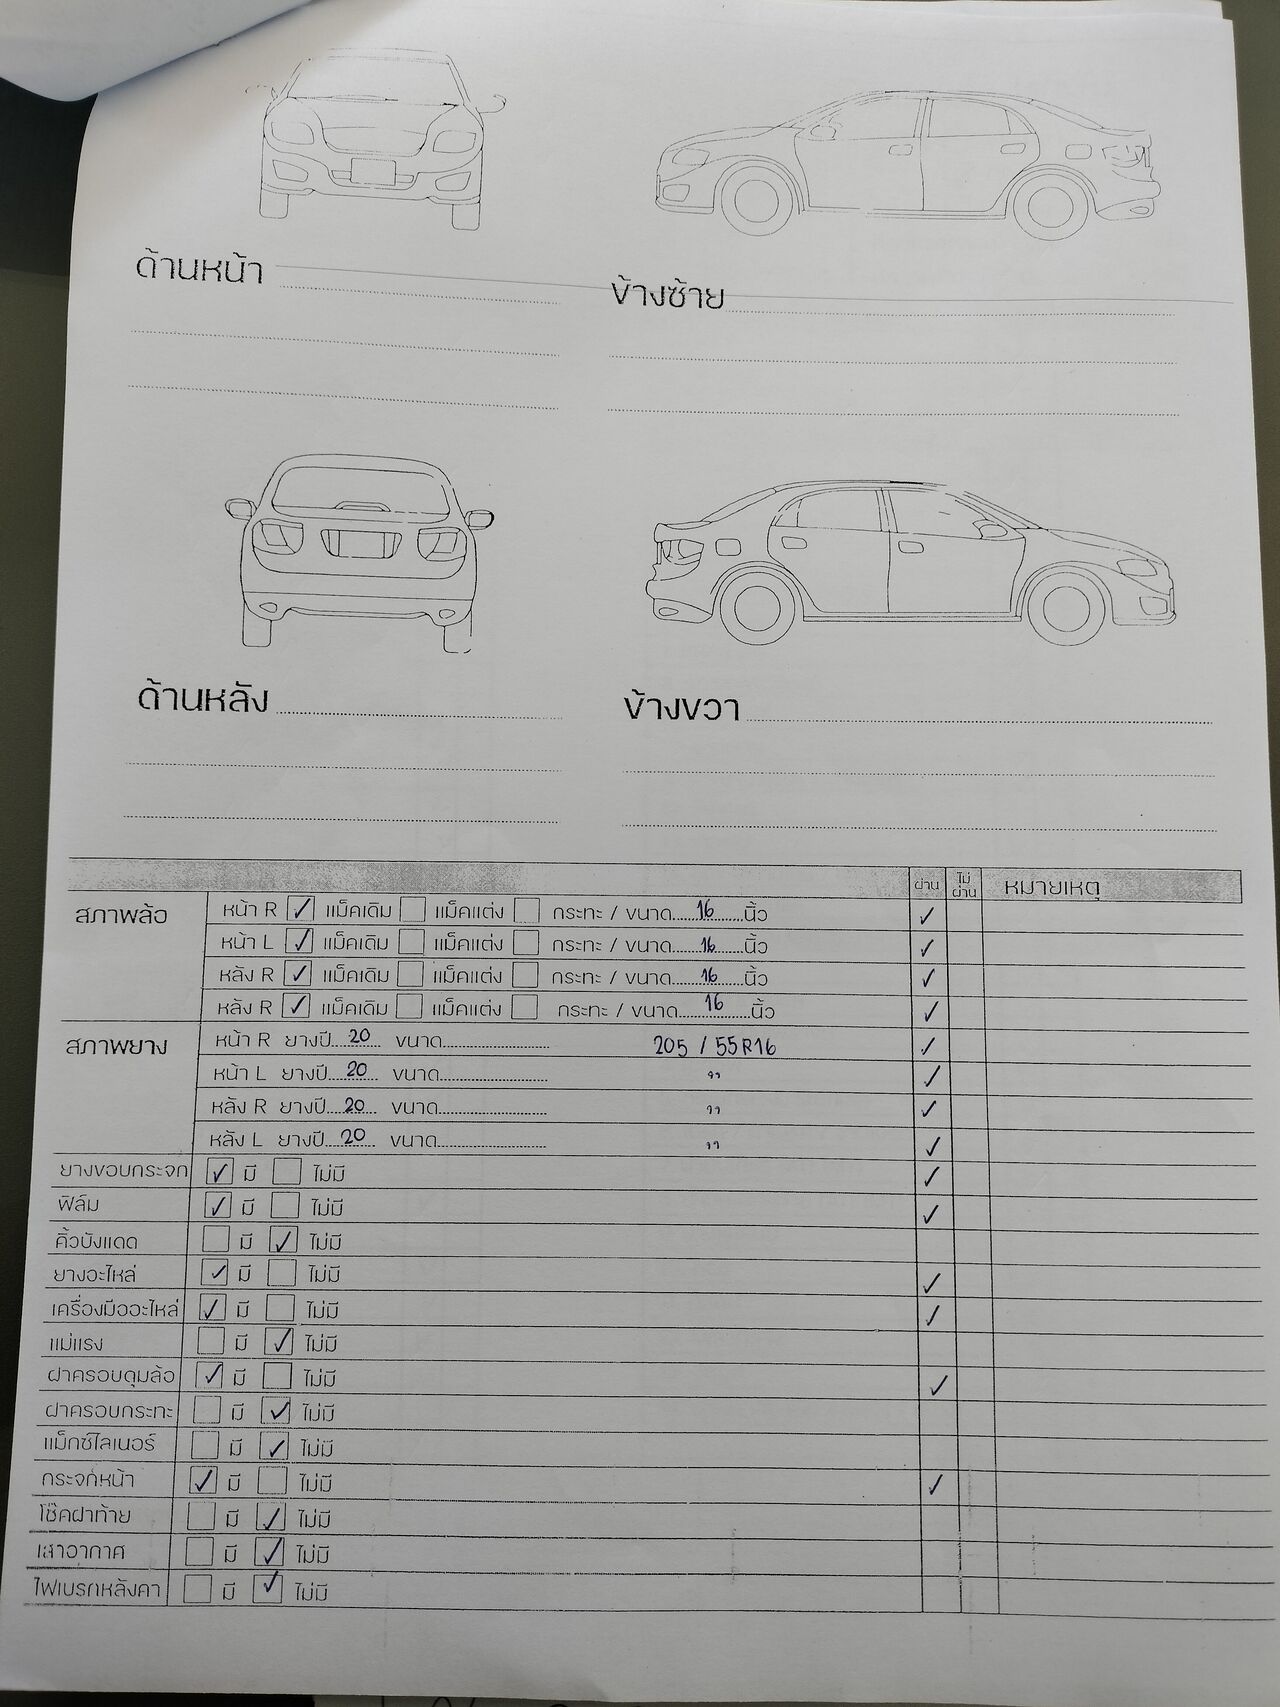 ด้านหน้า
ข้างซ้าย
ด้านหลัง
ข้างขวา
ผ่าน ไม่ผ่าน หมายเหตุ
สภาพล้อ หน้า R ✓ แม็คเดิม แม็คแต่ง กระทะ / ขนาด 16 นิ้ว ✓
หน้า L ✓ แม็คเดิม แม็คแต่ง กระทะ / ขนาด 16 นิ้ว ✓
หลัง R ✓ แม็คเดิม แม็คแต่ง กระทะ / ขนาด 16 นิ้ว ✓
หลัง R ✓ แม็คเดิม แม็คแต่ง กระทะ / ขนาด 16 นิ้ว ✓
สภาพยาง หน้า R ยางปี 20 ขนาด 205 / 55R16 ✓
หน้า L ยางปี 20 ขนาด " ✓
หลัง R ยางปี 20 ขนาด " ✓
หลัง L ยางปี 20 ขนาด " ✓
ยางขอบกระจก ✓ มี ไม่มี ✓
ฟิล์ม ✓ มี ไม่มี ✓
คิ้วบังแดด มี ✓ ไม่มี
ยางอะไหล่ ✓ มี ไม่มี ✓
เครื่องมืออะไหล่ ✓ มี ไม่มี ✓
แม่แรง มี ✓ ไม่มี
ฝาครอบดุมล้อ ✓ มี ไม่มี ✓
ฝาครอบกระทะ มี ✓ ไม่มี
แม็กซ์ไลเนอร์ มี ✓ ไม่มี
กระจกหน้า ✓ มี ไม่มี ✓
โช๊คฝาท้าย มี ✓ ไม่มี
เสาอากาศ มี ✓ ไม่มี
ไฟเบรกหลังคา มี ✓ ไม่มี